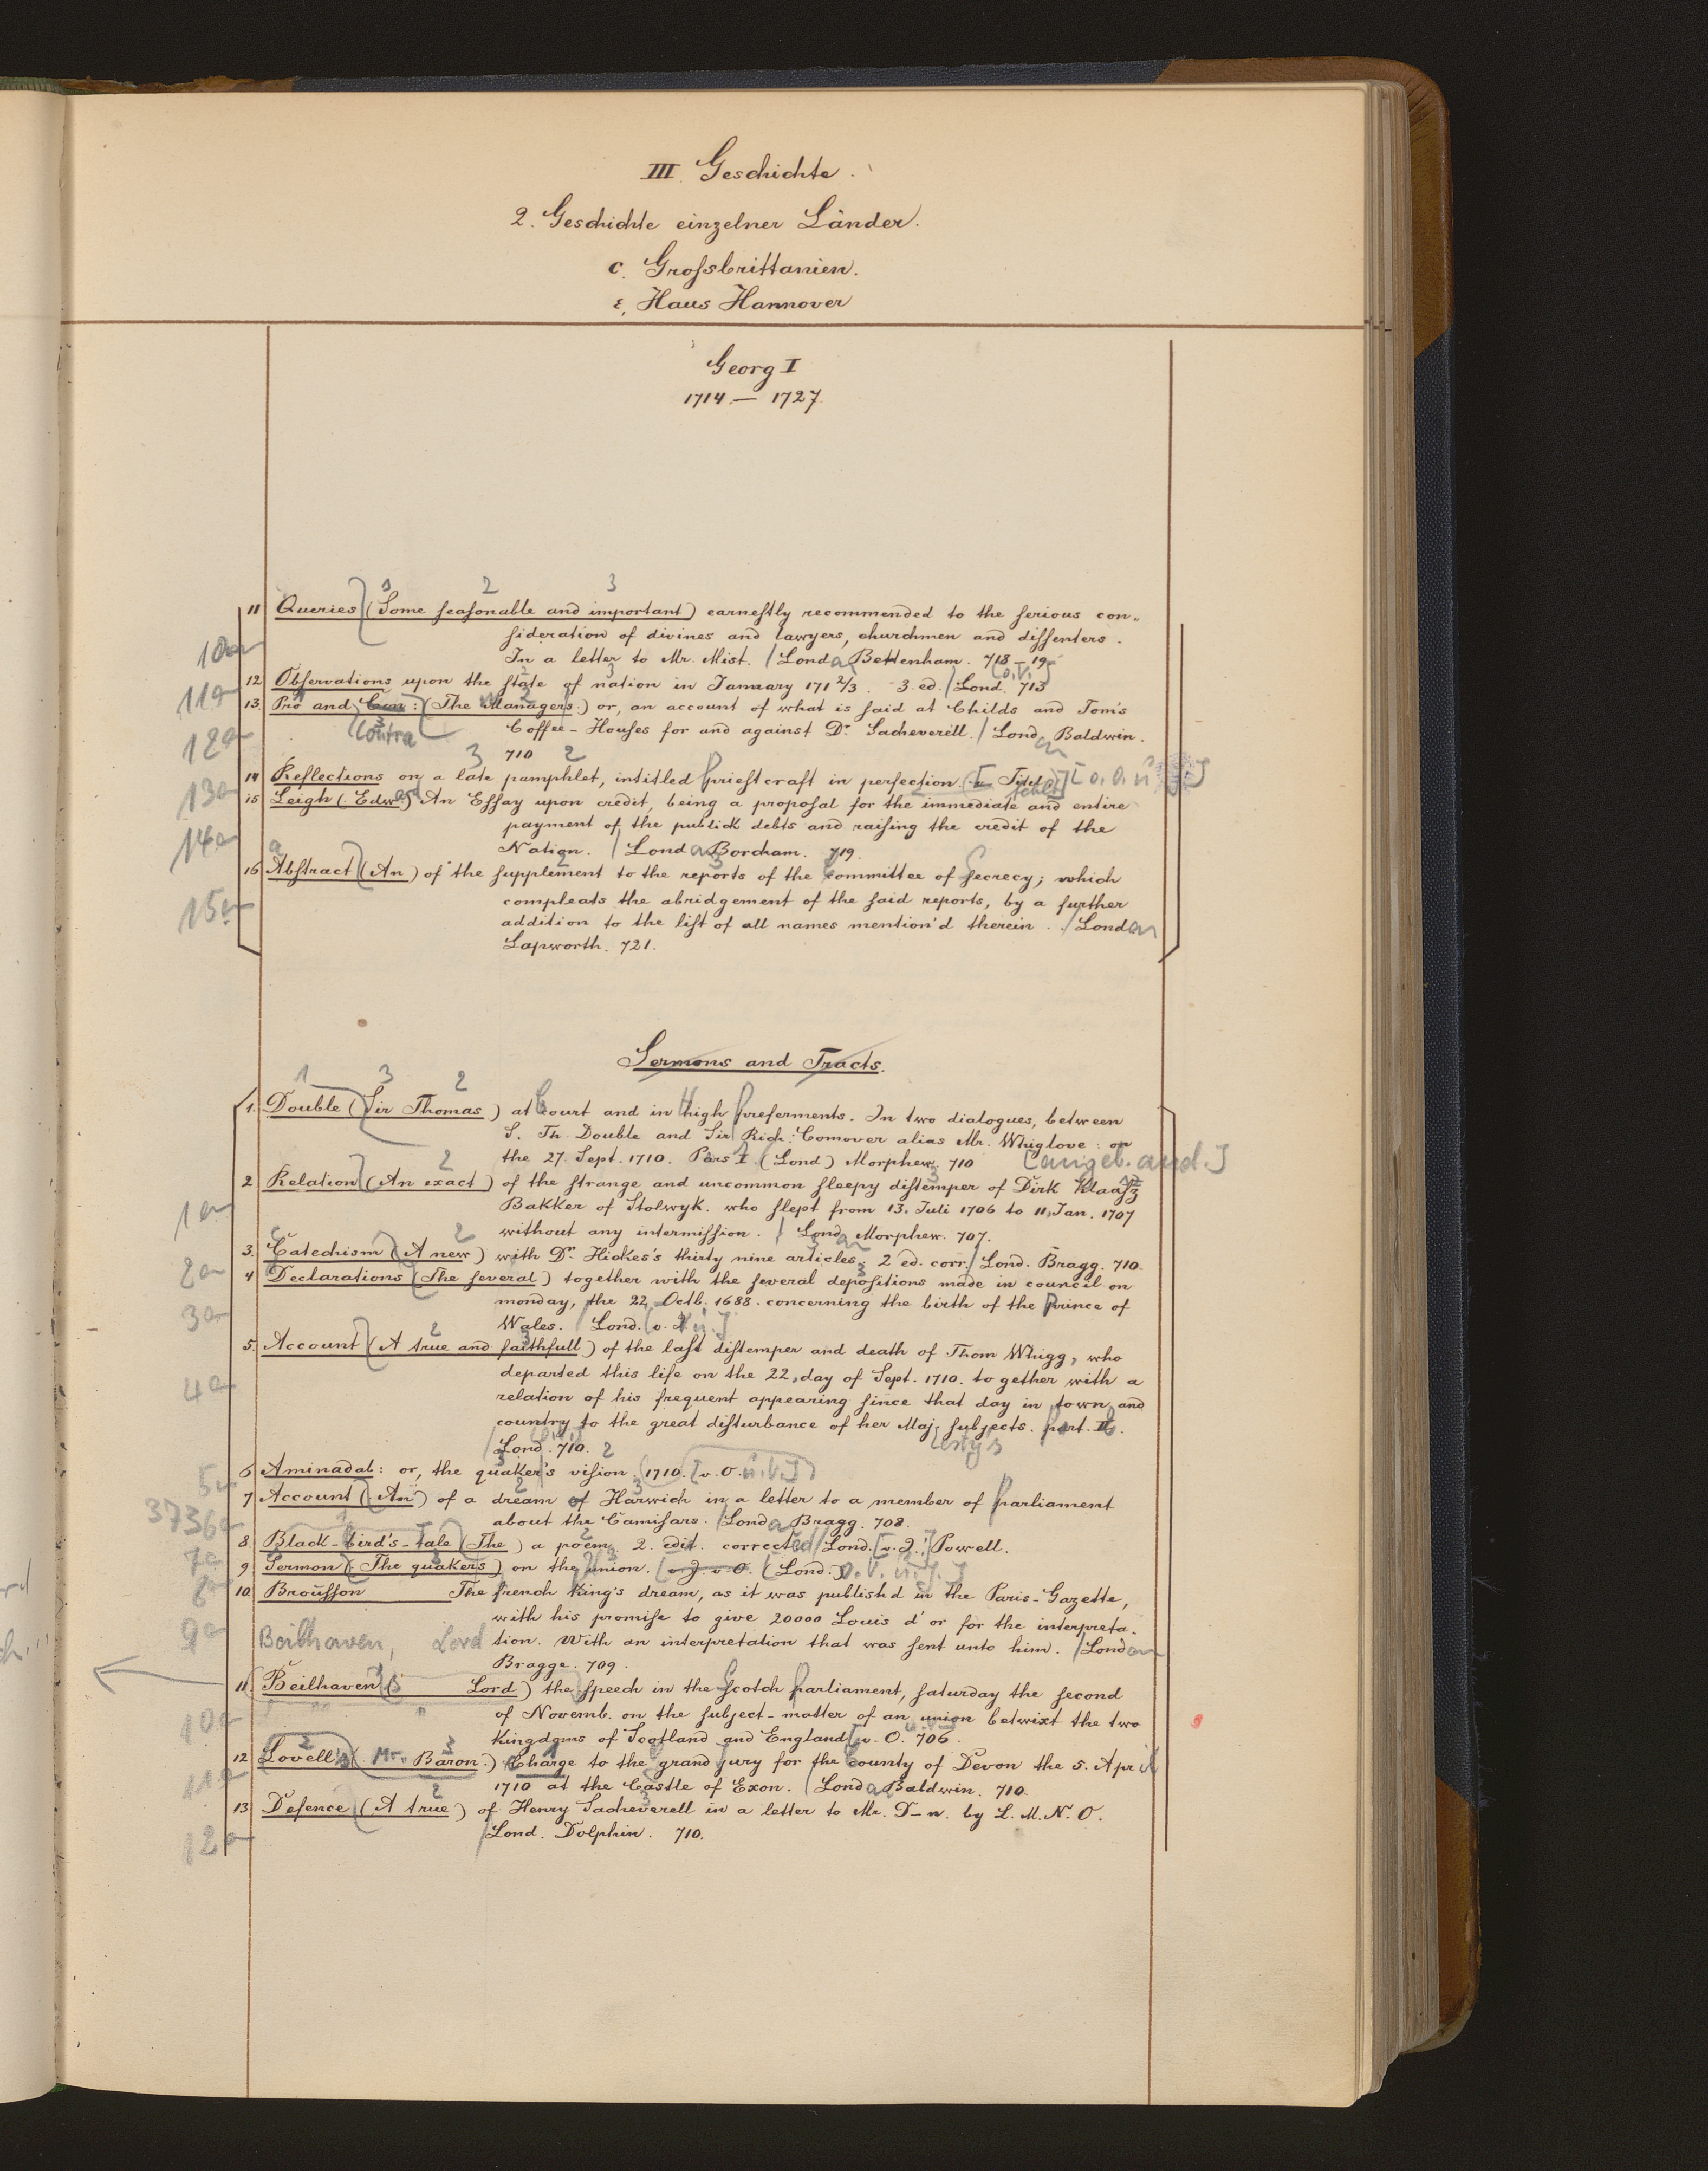 III. Geschichte.
2. Geschichte einzelner Länder.
c. Grossbrittanien.
ε, Haus Hannover
Georg I
1714 — 1727.
1 2 3
11 Queries (Some seasonable and important) earnestly recommended to the serious con-
sideration of divines and lawyers, churchmen and dissenters.
10a In a letter to Mr. Mist. / London Bettenham. 718-19
12 Observations upon the state of nation in January 171 2/3. 3. ed. / Lond. [o. V.] 713
11a
13. Pro and Con: (The Managers) or, an account of what is said at Childs and Tom's
Contra Coffee-Houses for and against Dr. Sacheverell. / London Baldwin.
12a 710
14 Reflections on a late pamphlet, intitled priestcraft in perfection [Titel fehlt] [o. O. u. J.]
13a
15 Leigh (Edward) An Essay upon credit, being a proposal for the immediate and entire
payment of the publick debts and raising the credit of the
14a Nation. / London Borcham. 719.
16 Abstract (An) of the supplement to the reports of the committee of secrecy; which
compleats the abridgement of the said reports, by a further
15a addition to the list of all names mention'd therein. / London
Lapworth. 721.
Sermons and Tracts.
1 3 2
1. Double (Sir Thomas) at Court and in High preferments. In two dialogues, between
S. Th. Double and Sir Rich: Comover alias Mr. Whiglove: on
the 27. Sept. 1710. Pars I. (Lond) Morphew. 710 [angeb. and.]
2 Relation (An exact) of the strange and uncommon sleepy distemper of Dirk Klaasz
Bakker of Stolwyk. who slept from 13. Juli 1706 to 11. Jan. 1707
1a without any intermission. / London Morphew. 707.
3. Catechism (A new) with Dr. Hickes's thirty nine articles. 2 ed. corr. / Lond. Bragg. 710.
2a
4 Declarations (The several) together with the several depositions made in council on
monday, the 22 Octb. 1688. concerning the birth of the Prince of
3a Wales. / Lond. [o. V. u. J.]
5. Account (A true and faithfull) of the last distemper and death of Thom Whigg, who
departed this life on the 22, day of Sept. 1710. to gether with a
4a relation of his frequent appearing since that day in town and
country to the great disturbance of her Majestys subjects. part. II.
/ Lond. 710.
6 Aminadab: or, the quaker's vision. (1710. [o. O. u. V.])
5a
7 Account (An) of a dream of Harwich in a letter to a member of parliament
3736a about the Camisars. / London Bragg. 708.
8. Black-bird's-tale (The) a poem. 2. edit. corrected / Lond. [o. J.] Powell.
7a
9 Sermon (The quakers) on the union. (o. J. o. O. (Lond.) o. V. u. J.]
8a
10. Brousson The french King's dream, as it was publish'd in the Paris-Gazette,
with his promise to give 20000 Louis d'or for the interpreta-
9a Beilhaven, Lord tion. With an interpretation that was sent unto him. / London
Bragge. 709.
11 Beilhaven (Lord) the speech in the Scotch parliament, saturday the second
of Novemb. on the subject-matter of an union betwixt the two
10a kingdoms of Scotland and England [o. O. 706.
12 Lovell's (Mr. Baron.) Charge to the grand jury for the County of Devon the 5. April
11a 1710 at the Castle of Exon. / London Baldwin. 710.
13 Defence (A true) of Henry Sacheverell in a letter to Mr. D-n. by L. M. N. O.
12a / Lond. Dolphin. 710.